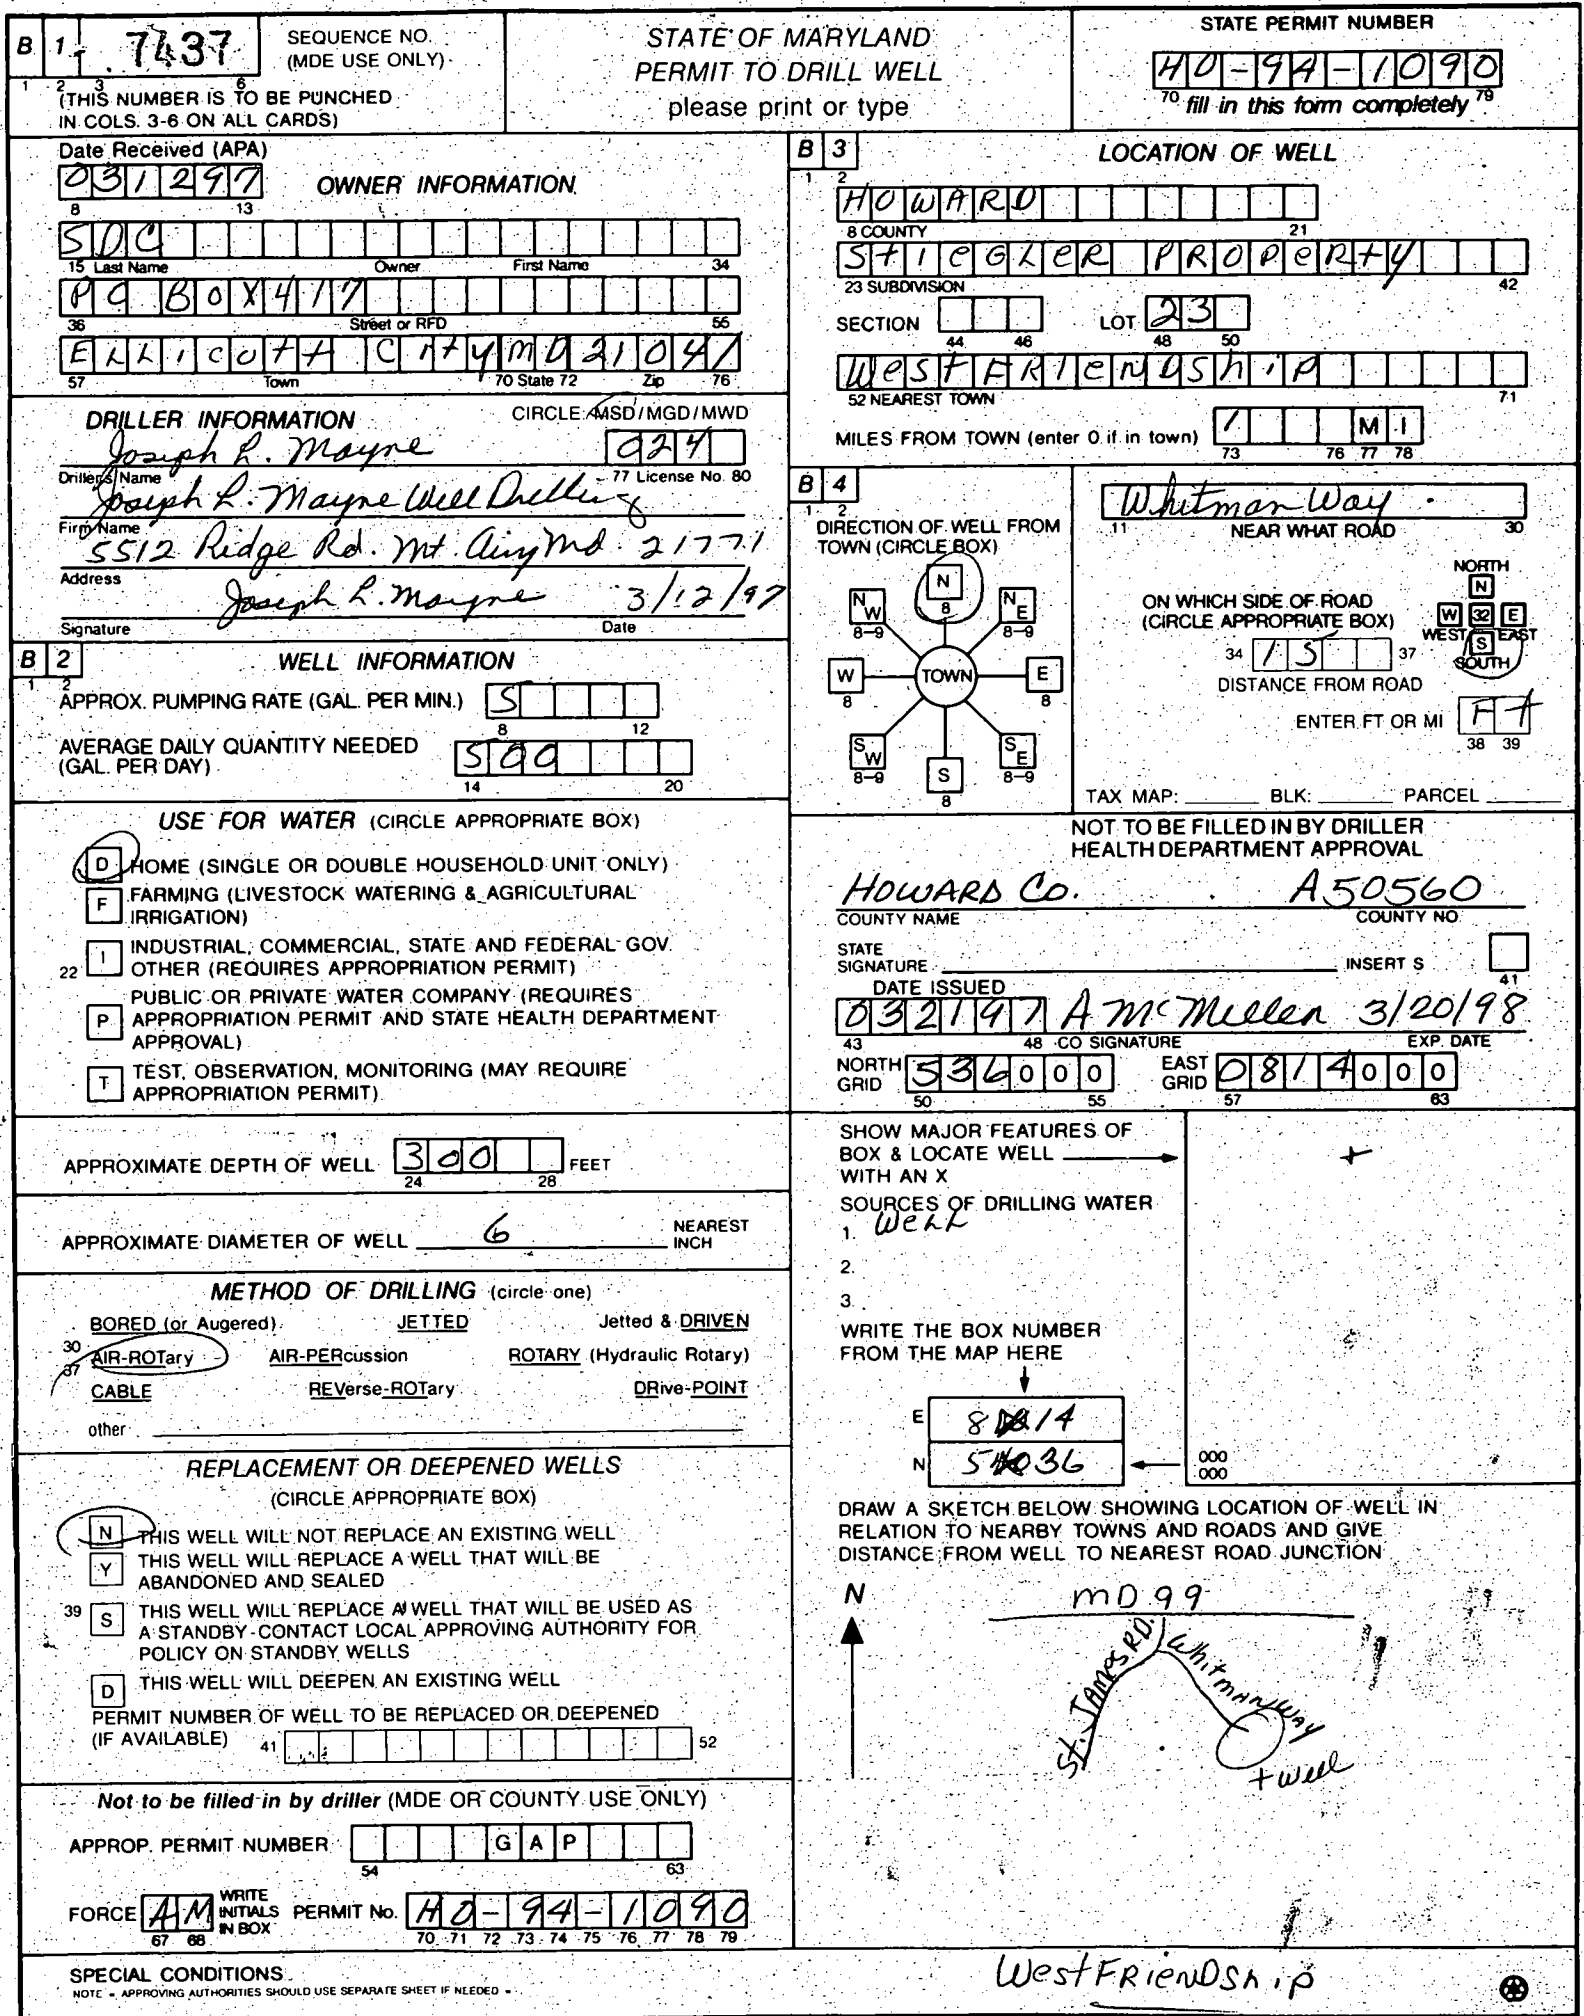 B 1 7437 SEQUENCE NO. (MDE USE ONLY)
1 2 3 6
(THIS NUMBER IS TO BE PUNCHED
IN COLS. 3-6 ON ALL CARDS)
STATE OF MARYLAND
PERMIT TO DRILL WELL
please print or type
STATE PERMIT NUMBER
HO-94-1090
70 fill in this form completely 79
Date Received (APA)
031297
8 13
OWNER INFORMATION
SDC
15 Last Name Owner First Name 34
PO BOX417
36 Street or RFD 55
ELLicott CityMD21041
57 Town 70 State 72 Zip 76
DRILLER INFORMATION
CIRCLE: MSD/MGD/MWD
Joseph L. Mayne 024
Driller's Name 77 License No. 80
Joseph L. Mayne Well Drilling
Firm Name
5512 Ridge Rd. Mt. Airy Md. 21771
Address
Joseph L. Mayne 3/12/97
Signature Date
B 2 WELL INFORMATION
1 2
APPROX. PUMPING RATE (GAL. PER MIN.) 5
8 12
AVERAGE DAILY QUANTITY NEEDED
(GAL. PER DAY) 500
14 20
USE FOR WATER (CIRCLE APPROPRIATE BOX)
D HOME (SINGLE OR DOUBLE HOUSEHOLD UNIT ONLY)
F FARMING (LIVESTOCK WATERING & AGRICULTURAL
IRRIGATION)
22 I INDUSTRIAL, COMMERCIAL, STATE AND FEDERAL GOV.
OTHER (REQUIRES APPROPRIATION PERMIT)
P PUBLIC OR PRIVATE WATER COMPANY (REQUIRES
APPROPRIATION PERMIT AND STATE HEALTH DEPARTMENT
APPROVAL)
T TEST, OBSERVATION, MONITORING (MAY REQUIRE
APPROPRIATION PERMIT)
APPROXIMATE DEPTH OF WELL 300 FEET
24 28
APPROXIMATE DIAMETER OF WELL 6 NEAREST
INCH
METHOD OF DRILLING (circle one)
BORED (or Augered) JETTED Jetted & DRIVEN
30 AIR-ROTary AIR-PERcussion ROTARY (Hydraulic Rotary)
37 CABLE REVerse-ROTary DRive-POINT
other
REPLACEMENT OR DEEPENED WELLS
(CIRCLE APPROPRIATE BOX)
N THIS WELL WILL NOT REPLACE AN EXISTING WELL
Y THIS WELL WILL REPLACE A WELL THAT WILL BE
ABANDONED AND SEALED
39 S THIS WELL WILL REPLACE A WELL THAT WILL BE USED AS
A STANDBY-CONTACT LOCAL APPROVING AUTHORITY FOR
POLICY ON STANDBY WELLS
D THIS WELL WILL DEEPEN AN EXISTING WELL
PERMIT NUMBER OF WELL TO BE REPLACED OR DEEPENED
(IF AVAILABLE) 41 52
Not to be filled in by driller (MDE OR COUNTY USE ONLY)
APPROP. PERMIT NUMBER GAP
54 63
FORCE AM WRITE INITIALS IN BOX PERMIT No. HO-94-1090
67 68 70 71 72 73 74 75 76 77 78 79
SPECIAL CONDITIONS
NOTE - APPROVING AUTHORITIES SHOULD USE SEPARATE SHEET IF NEEDED -
B 3 LOCATION OF WELL
1 2
HOWARD
8 COUNTY 21
StIeGLER PROPeRty
23 SUBDIVISION 42
SECTION LOT 23
44 46 48 50
WestFRIenDship
52 NEAREST TOWN 71
MILES FROM TOWN (enter 0 if in town) 1 MI
73 76 77 78
B 4
1 2
DIRECTION OF WELL FROM
TOWN (CIRCLE BOX)
N 8
NW 8-9 NE 8-9
W 8 TOWN E 8
SW 8-9 SE 8-9
S 8
Whitman Way
11 NEAR WHAT ROAD 30
ON WHICH SIDE OF ROAD
(CIRCLE APPROPRIATE BOX)
NORTH
N
W 32 E
WEST EAST
S
SOUTH
34 15 37
DISTANCE FROM ROAD
ENTER FT OR MI Ft
38 39
TAX MAP: BLK: PARCEL
NOT TO BE FILLED IN BY DRILLER
HEALTH DEPARTMENT APPROVAL
HOWARD CO. A50560
COUNTY NAME COUNTY NO.
STATE
SIGNATURE INSERT S
41
DATE ISSUED
032197 A McMillen 3/20/98
43 48 CO SIGNATURE EXP. DATE
NORTH GRID 536000 EAST GRID 0814000
50 55 57 63
SHOW MAJOR FEATURES OF
BOX & LOCATE WELL
WITH AN X
SOURCES OF DRILLING WATER
1. WeLL
2.
3.
WRITE THE BOX NUMBER
FROM THE MAP HERE
E 814
N 536
000
000
DRAW A SKETCH BELOW SHOWING LOCATION OF WELL IN
RELATION TO NEARBY TOWNS AND ROADS AND GIVE
DISTANCE FROM WELL TO NEAREST ROAD JUNCTION
N
MD 99
St. JAMES RD.
Whitman Way
+ well
WestFRienDship